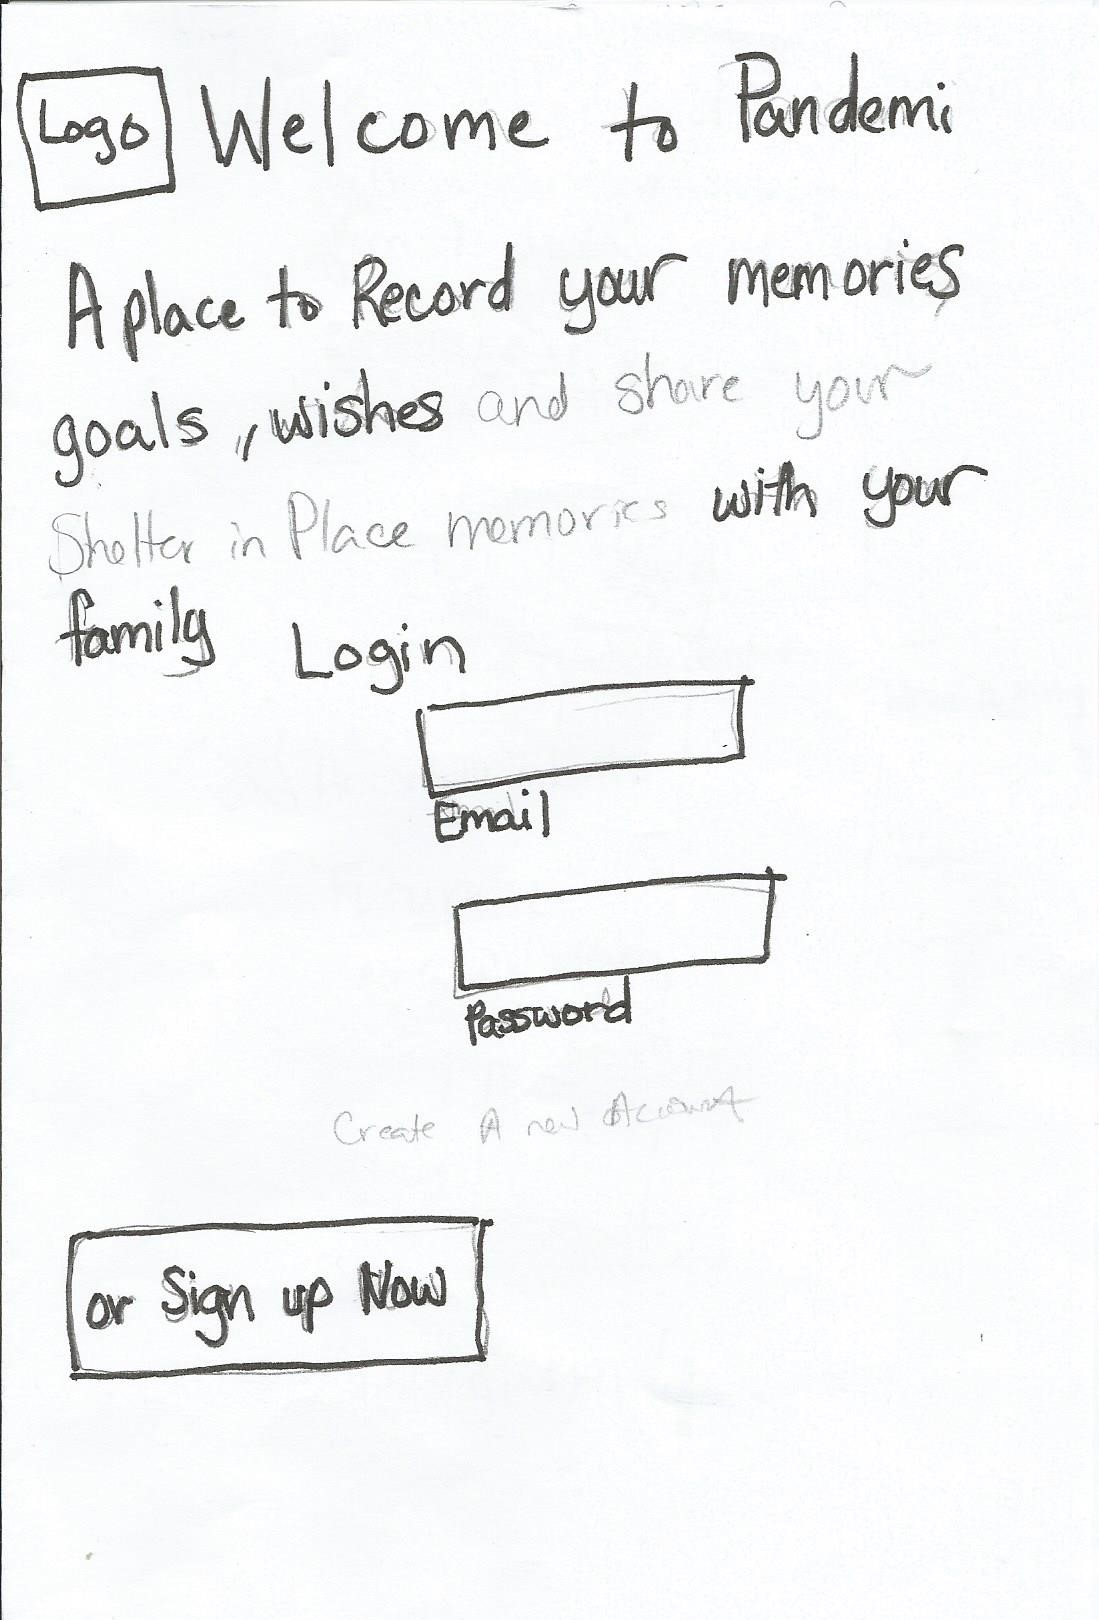 Logo Welcome to Pandemi
A place to Record your memories
goals, wishes and share your
Shelter in Place memories with your
family Login
Email
Password
Create A new Account
or Sign up Now